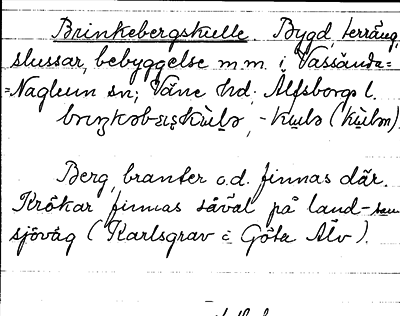 Brinkebergskulle. Bygd, terräng,
slussar, bebyggelse m.m. i Vassända=
=Naglum sn; Väne hd. Älfsborgs l.
Berg, branter o.d. finnas där.
Krökar finnas såväl på land- som
sjöväg (Karlsgrav i Göta Älv).